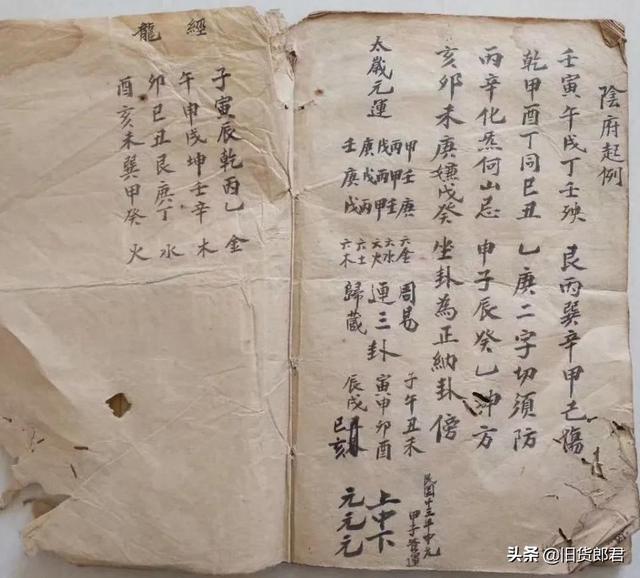 陰府起例
壬寅午戌丁壬殃 艮丙巽辛甲己傷
乾甲酉丁同巳丑 乙庚二字切須防
丙辛化炁何山忌 申子辰癸乙冲方
亥卯未庚嫌戊癸 坐卦為正納卦傍
太歲元運
甲壬庚 六金
丙甲壬 六水
戊丙甲 六火
庚戊丙 六土
壬庚戊 六木
周易 子午丑未
連三卦 寅申卯酉
歸藏 辰戌巳亥
上元
中元
下元
民國十三年中元
甲子管運
經龍
子寅辰乾丙乙 金
午申戌坤壬辛 木
卯巳丑艮庚丁 水
酉亥未巽甲癸 火
头条 @旧货郎君